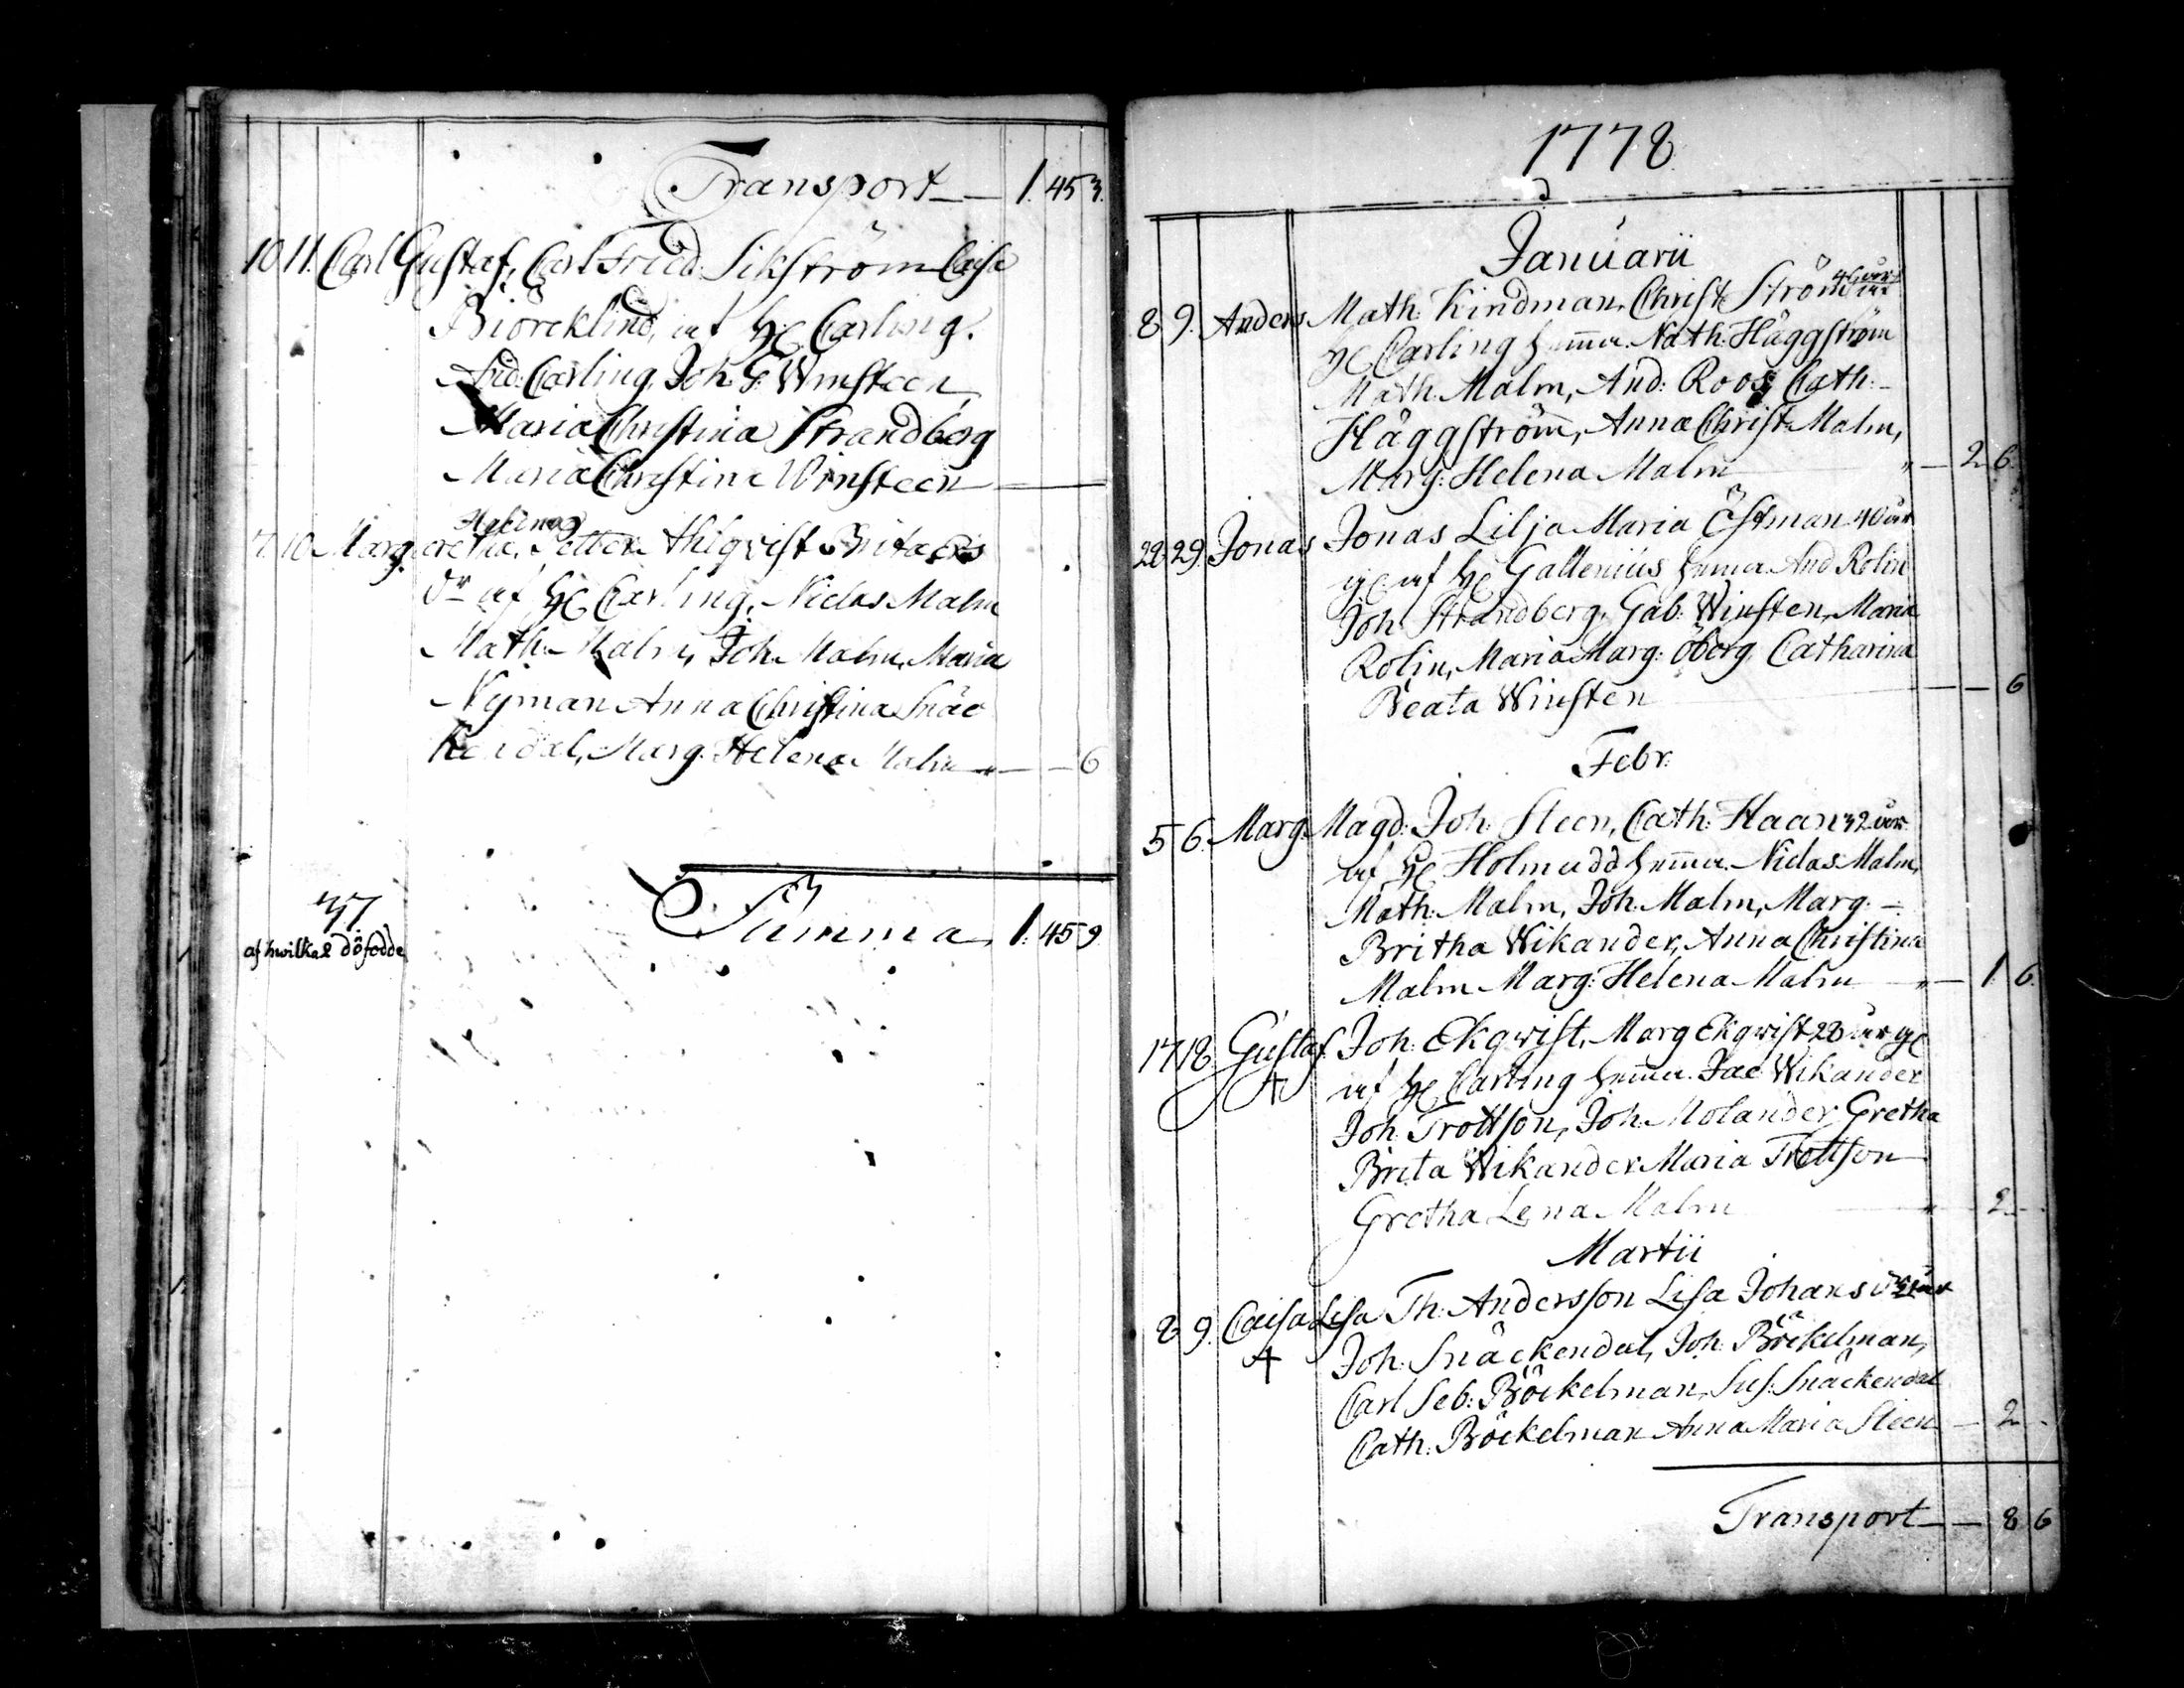 Transport — 1. 45 3.
10 11. Carl Gustaf, Carl Fried. Sikström Caisa
Biörcklind, af H: Carling.
And: Carling, Joh. G: Winsteen
Maria Christina Strandberg
Maria Christina Winsteen
Helena
7. 10. Margaretha, Petter Ahlqvist Brita Ers
dr af H: Carling, Niclas Malm
Math. Malm, Joh. Malm, Maria
Nyman Anna Christina Snäc
kendal, Marg. Helena Malm — 6
Summa 1. 45 9.
37
af hwilka 2 döfödde
1778
Januarii
8 9. Anders Math. Kindman, Christ. Ström 46 år
H: Carling hemma. Nath: Häggström
Math. Malm, And: Roos, Cath:
Häggström, Anna Christ. Malm,
Marg: Helena Malm — 2 6.
28 29. Jonas Jonas Lilja Maria Östman 40 år
af H: Gallenius hemma And Rolin
Joh Strandberg, Gab. Winsten, Maria
Rolin, Maria Marg: Öberg Catharina
Beata Winsten — 6
Febr:
5 6. Marg. Magd: Joh: Steen, Cath: Haan 32 år
af H: Holmudd hemma. Niclas Malm,
Math: Malm, Joh. Malm, Marg: –
Britha Wikander, Anna Christina
Malm Marg: Helena Malm — 1. 6.
17 18. Gustaf. Joh: Ekqwist, Marg Ekqwist 28 år
+ af H: Carling hemma. Jac Wikander
Joh. Trottson, Joh. Molander Gretha
Brita Wikander Maria Trottson
Gretha Lena Malm — 2 —
Martii
8 9. Caisa Lisa Th: Andersson Lisa Johans dr
+ Joh: Snäckendal, Joh. Böckelman,
Carl Seb: Böckelman, Sus: Snäckendal
Cath: Böckelman Anna Maria Steen — 2 —
Transport — 8 6